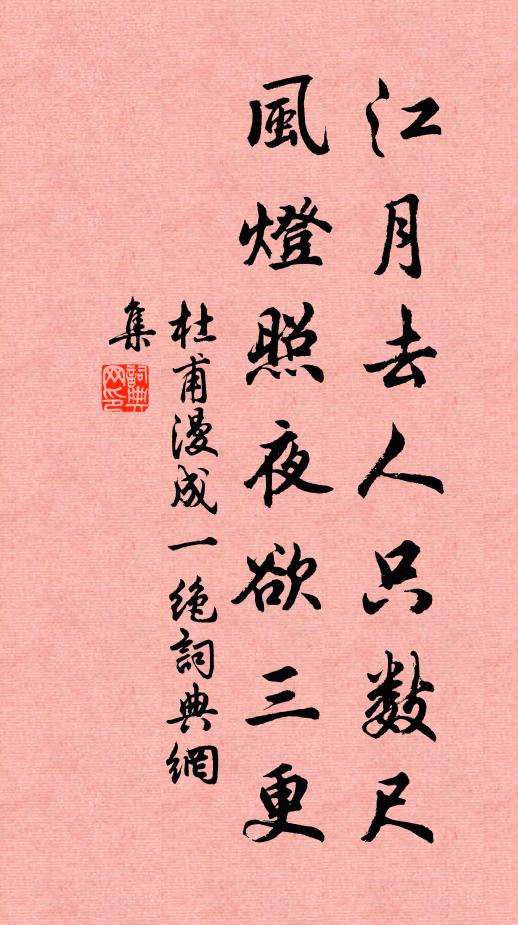 江月去人只數尺
風燈照夜欲三更
杜甫漫成一绝詞典網
集
詞典网印